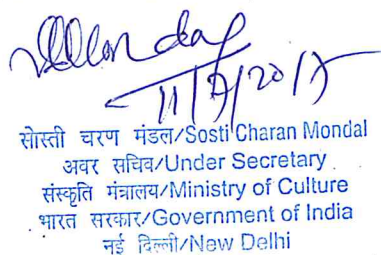 सोस्ती चरण मंडल/Sosti Charan Mondal
अवर सचिव/Under Secretary
संस्कृति मंत्रालय/Ministry of Culture
भारत सरकार/Government of India
नई दिल्ली/New Delhi